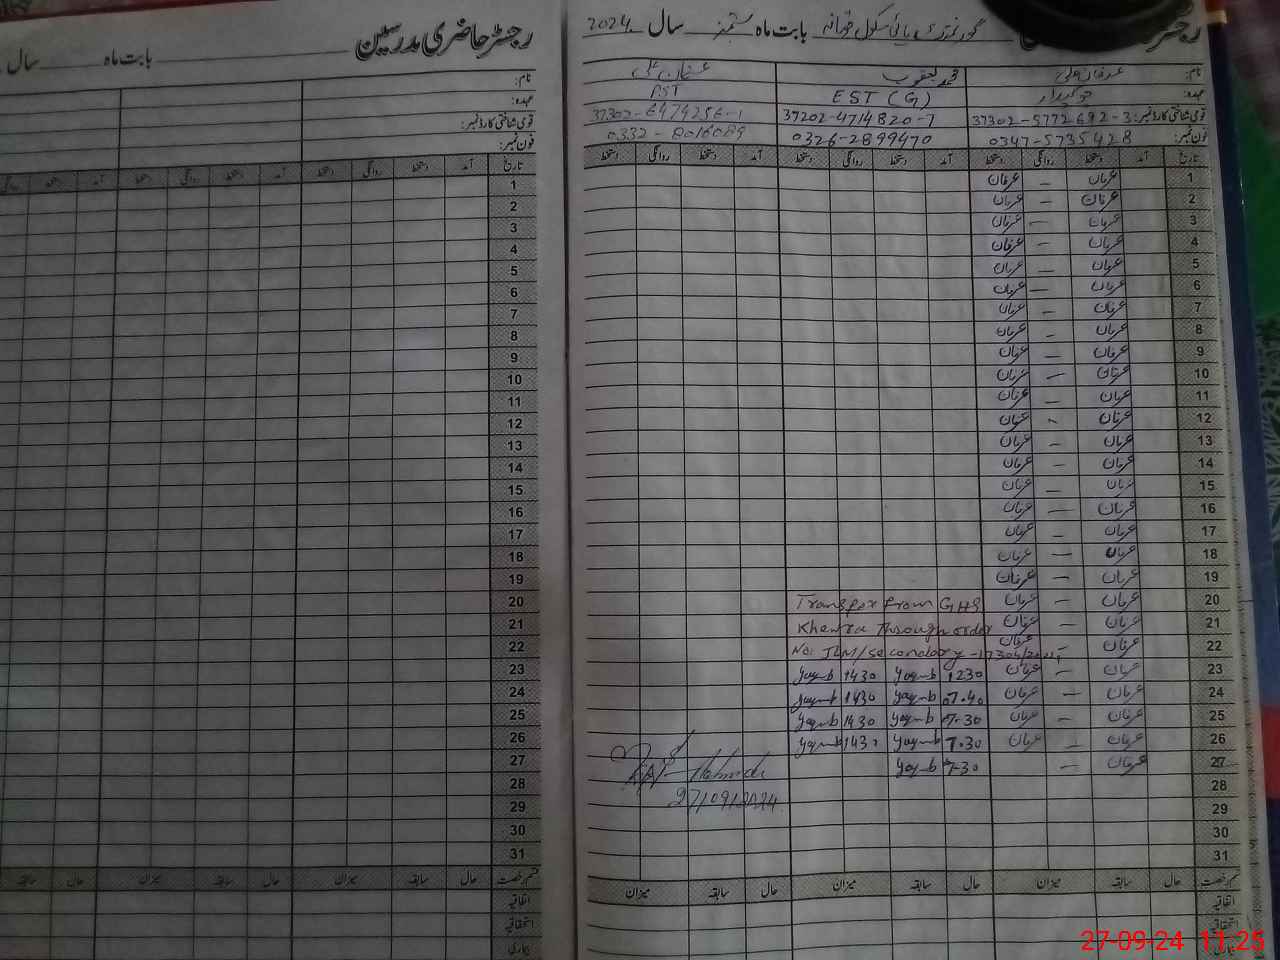 رجسٹر حاضری مدرسین بابت ماہ سال
نام:
عہدہ:
قومی شناختی کارڈ نمبر:
فون نمبر:
تاریخ آمد دستخط روانگی دستخط آمد دستخط روانگی دستخط آمد دستخط روانگی
1
2
3
4
5
6
7
8
9
10
11
12
13
14
15
16
17
18
19
20
21
22
23
24
25
26
27
28
29
30
31
قسم رخصت حال سابقہ میزان حال سابقہ میزان حال سابقہ
اتفاقیہ
استحقاقیہ
بیماری
گورنمنٹ ہائی سکول بابت ماہ ستمبر سال 2024
نام: عرفان علی محمد یعقوب عثمان علی
عہدہ: چوکیدار EST (G) PST
قومی شناختی کارڈ نمبر: 37302-5772692-3 37202-4714820-7 37302-6474256-1
فون نمبر: 0347-5735428 0326-2899470 0332-8016089
تاریخ آمد دستخط روانگی دستخط آمد دستخط روانگی دستخط آمد دستخط روانگی دستخط
1 عرفان — عرفان
2 عرفان — عرفان
3 عرفان — عرفان
4 عرفان — عرفان
5 عرفان — عرفان
6 عرفان — عرفان
7 عرفان — عرفان
8 عرفان — عرفان
9 عرفان — عرفان
10 عرفان — عرفان
11 عرفان — عرفان
12 عرفان - عرفان
13 عرفان — عرفان
14 عرفان — عرفان
15 عرفان — عرفان
16 عرفان — عرفان
17 عرفان — عرفان
18 عرفان — عرفان
19 عرفان — عرفان
20 عرفان — عرفان Transfer from GHS
21 عرفان — عرفان Khewra Through order
22 عرفان — عرفان No: JLM/secondary
23 عرفان — عرفان 1230 Yaqub 1430 Yaqub
24 عرفان — عرفان 07.40 Yaqub 1430 Yaqub
25 عرفان — عرفان 07.30 Yaqub 1430 Yaqub
26 عرفان — عرفان 7.30 Yaqub 1430 Yaqub
27 عرفان — 7.30 Yaqub
27/09/2024
28
29
30
31
قسم رخصت حال سابقہ میزان حال سابقہ میزان حال سابقہ میزان
اتفاقیہ
استحقاقیہ
بیماری
27-09-24 11:25